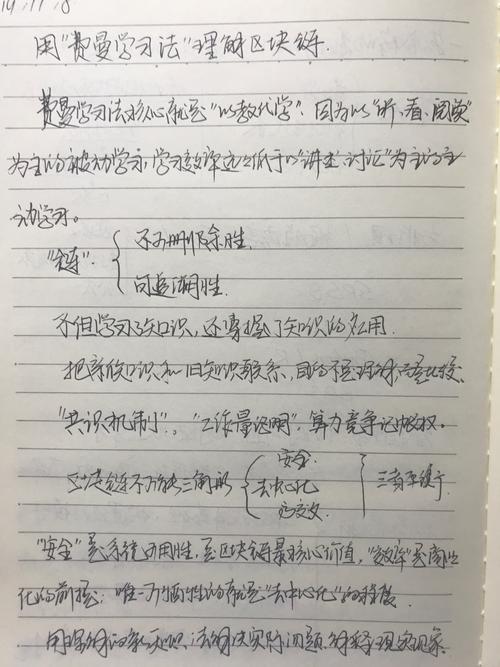 19.11.8
用"费曼学习法"理解区块链.
费曼学习法核心就是"以教代学". 因为以"听、看、阅读"
为主的被动学习,学习效率远低于以"讲述、讨论"为主的主
动学习。
"链": 不可删除性.
可追溯性.
不但学习了知识,还掌握了知识的应用.
把新知识和旧知识联系,目的不是理解而是比较.
"共识机制"。"工作量证明",算力竞争记账权。
区块链不可能三角形 安全. 去中心化 高效 三者平衡
"安全"是系统可用性,是区块链最核心价值,"效率"是商业
化的前提;唯一可牺牲的就是"去中心化"的程度.
用理解的新知识,去解决实际问题,解释现实现象.